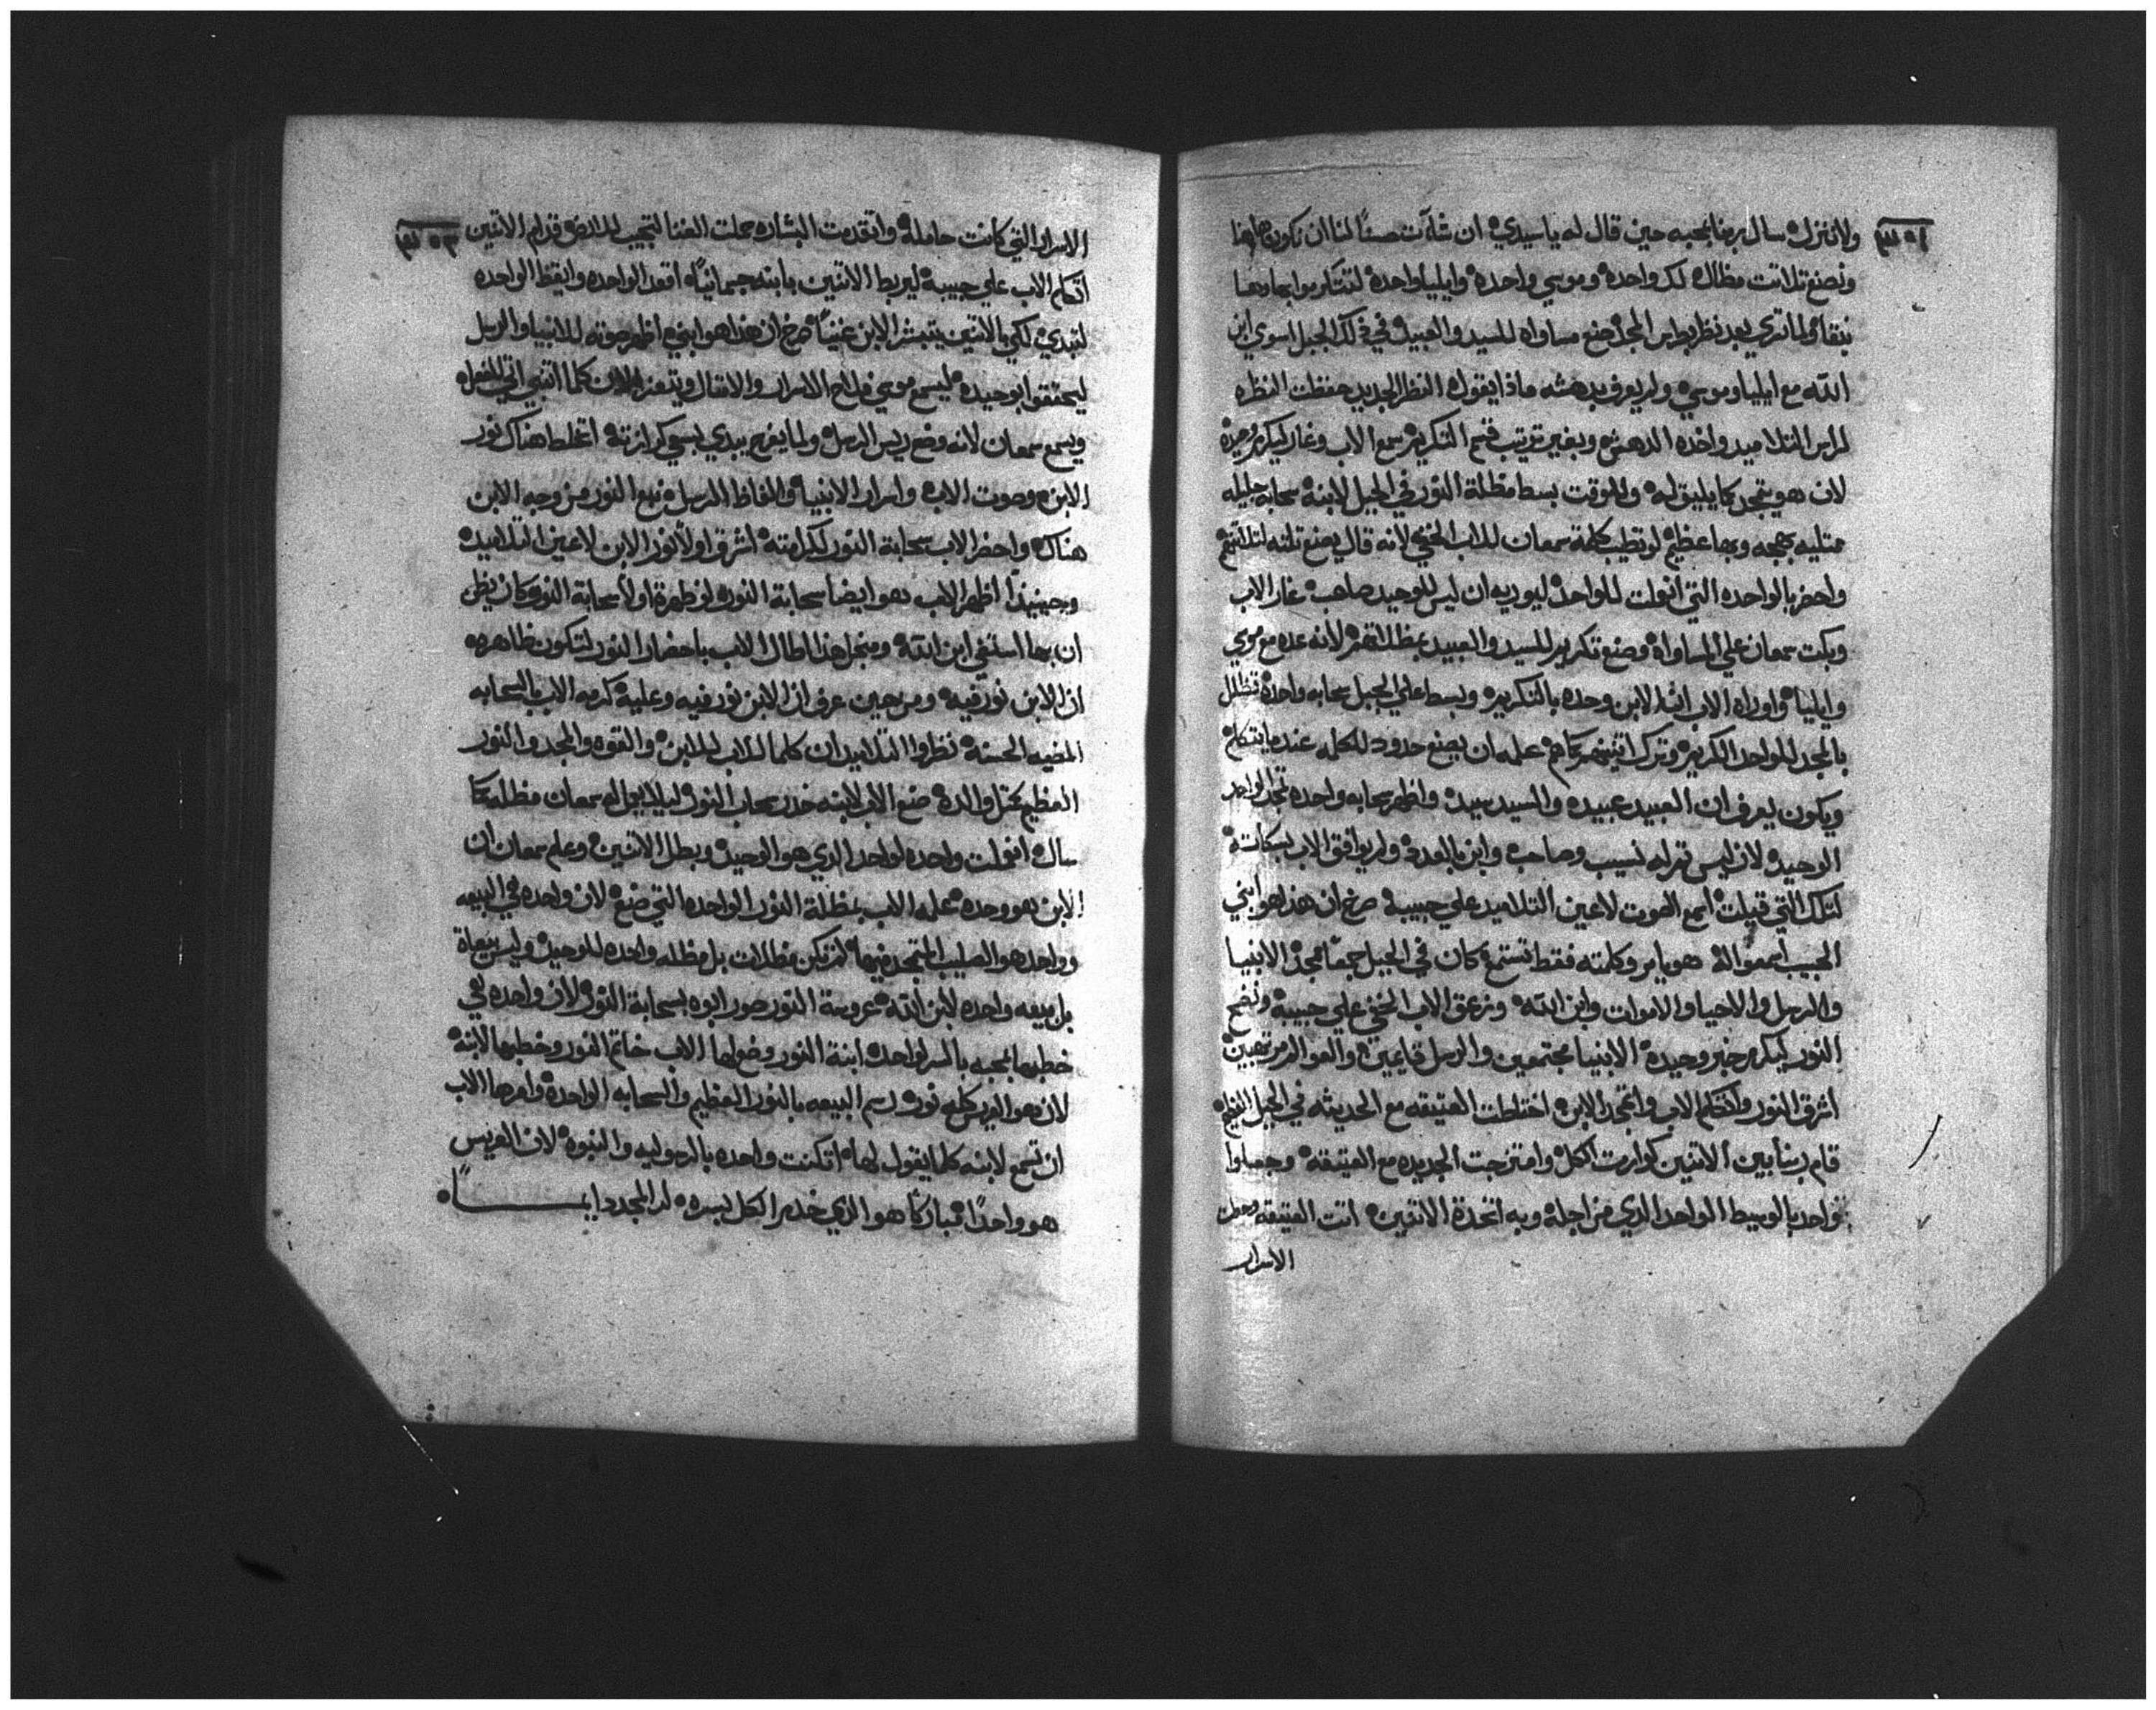 ولا ننزل سال ربنا بمحبه حين قال له ياسيدي ان شات حسنًا لنا ان نكون هاهنا
ونصنع تلاتت مظال لك واحده وموسي واحده وايليا واحده
نبقا ولما تري بعد نظر بطرس المجد صنع مساواه للسيد والعبيد في ذلك الجبل السوي ابن
الله مع ايليا وموسي ولم يعرف بدهشه ماذا يقول النظر الجديد حفظت النظره
لراس التلاميد واخده الدهش وبغير ترتيب قسم التكريم سمع الاب وغار ليكرم وحيده
لان هو يتمجد كما يليق له وللوقت بسط مظلة النور في الجبل لابنه سحابه جليله
ممتليه بهجه وبها عظيم كلمة سمعان للاب الخفي لانه قال يصنع تلته لتلاتتهم
واحضر بالواحده التي انولت للواحد ليوريه ان ليس للوحيد صاحب غار الاب
وبكت سمعان علي المساواه وصنع تكريم للسيد والعبيد بمظلاتهم لانه عده مع موسي
وايليا واوراه الاب ان الابن وحده بالتكريم وبسط علي الجبل سحابه واحده تظلل
بالمجد للواحد الكريم وترك اتنينهم علمه ان يصنع حدود للكلمه عندما يتكلم
ويكون يعرف ان العبيد عبيده والسيد سيد واظهر سحابه واحده تمجد الواحد
الوحيد لان ليس تم له نسيب وصاحب وابن بالعده ولم يوافق الاب لسكاته
لتلك التي قيلت اسمع الصوت لاعين التلاميد علي حبيبه صرخ ان هذا هو ابني
الحبيب اسمعوا له هو يامر وكلمته فقط تستمع كان في الجبل جمعًا ممجد الانبيا
والرسل والاحيا والاموات وابن الله وزعق الاب الخفي علي حبيبه ونضح
النور ليكرم خبر وحيده الانبيا مجتمعين والرسل قايمين والعوالم مرتهبين
اشرق النور وتكلم الاب واتمجد الابن اختلطت العتيقه مع الحديثه في الجبل العظيم
قام ربنا بين الاتنين كوارت الكل وامتزجت الجديده مع العتيقه وجعلوا
واحد بالوسيط الواحد الذي من اجله وبه اتحدة الاتنين اتت العتيقه وحطت
الاسرار
الاسرار التي كانت حامله واتقدمت البشاره حملت الغنا العجيب للارض قدام الاتنين
اتكلم الاب علي حبيبه ليربط الاتنين بابنه جسمانيًا اقعد الواحده وايقظ الواحده
لتبدي لكي بالاتنين يتبشر الابن غنيًا صرخ ان هذا هو ابني اظهر صوته للانبيا والرسل
ليحققوا بوحيده ليسمع موسي فلاح الاسرار والامتال ويتعزا الان كلما اتنبي اتي للفعل
ويسمع سمعان لانه وضع ريس الرسل ولما يفرح يبدي بسعي كرازته اختلط هناك نور
الابن وصوت الاب واسرار الانبيا والفاظ الرسل نبع النور من وجه الابن
هناك واحضر الاب سحابة النور لكرامته اشرق اولًا نور الابن لاعين التلاميد
وحينيذًا اظهر الاب هو ايضا سحابة النور لو ظهرة اولًا سحابة النور كان يظن
ان بها استضي ابن الله ومنجل هذا اطال الاب باحضار النور لتكون ظاهره
ان الابن نور فيه ومن حين عرف ان الابن نور فيه وعليه كرمه الاب بالسحابه
المضيه الحسنه نظروا التلاميد ان كلما للاب للابن والقوه والمجد والنور
العظيم كمتل والده صنع الاب لابنه خدر سحاب النور ليلا يعمل له سمعان مظله كما
سال انولت واحده لواحد الذي هو الوحيد وبطل الاتنين وعلم سمعان ان
الابن هو وحده علمه الاب بمظلة النور الواحده التي صنع لان واحده هي البيعه
وواحد هو الصليب المتمجد فيها لم تكن مظلات بل مظله واحده للوحيد وليس بيعاة
بل بيعه واحده لابن الله عروسة النور صور ابوه بسحابة النور لان واحده هي
خطبها بمحبه بالسر لواحده ابنة النور وضع لها الاب خاتم النور وخطبها لابنه
لان هو العريس كله نور رسم البيعه بالنور العظيم والسحابه الواحده وامرها الاب
ان تسمع لابنه كلما يقول لها اتكنت واحده بالرسوليه والنبوه لان العريس
هو واحدًا مباركًا هو الذي خدم الكل بسره له المجد دايمًا